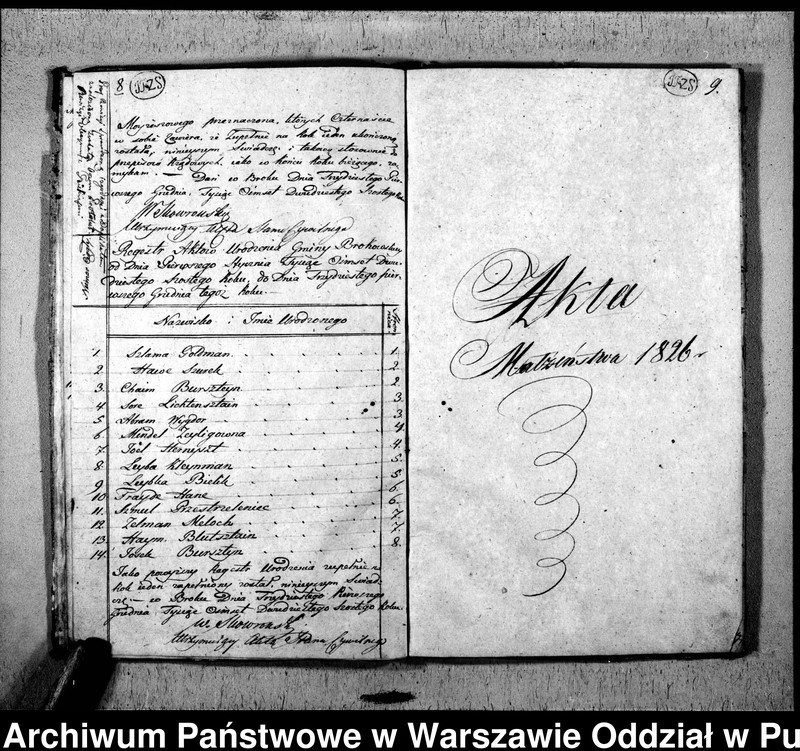 8
9.
Mojżeszowego przeznaczona, których Czternaście
w sobie Zawiera, iż Zupełnie na Rok ieden ukończoną
została, ninieyszym Świadczę i takowe stosownie do
przepisów Rządowych, iako w końcu Roku bieżącego, za-
mykam. — Dan w Broku Dnia Trzydziestego Pier-
wszego Grudnia, Tysiąc Ośmset Dwudziestego Szostego Roku
W Skowroński
Utrzymuiący Akta Stanu Cywilnego
Regestr Aktow Urodzenia Gminy
od Dnia Pierwszego Stycznia Tysiąc Ośmset Dwu-
dziestego Szostego Roku, do Dnia Trzydziestego pier-
wszego Grudnia tegoż Roku.
Nazwisko i Imie Urodzonego
1. Szlama Goldman 1.
2. Hawe Szurek 2.
3. Chaim Bursztyn 2.
4. Sore Lichtensztain 3.
5. Abram Wygdor 3.
6. Mendel Zeyligowna 4.
7. Joel Hernszt 4.
8. Leyba Kleynman 5.
9. Leybka Bielik 5.
10. Frayde Hane 6.
11. Szmul Przestrzeleniec 6.
12. Zelman Meloch 7.
13. Haym Blutsztain 7.
14. Josek Bursztyn 8.
Jako powyższy Regestr Urodzenia zupełnie na
Rok ieden zapełniony został, ninieyszym Świad-
czę — w Broku Dnia Trzydziestego Pierwszego
Grudnia Tysiąc Ośmset Dwudziestego Szostego Roku.
W. Skowroński
Utrzymuiący Akta Stanu Cywilnego
Akta
Małżeństwa 1826
Archiwum Państwowe w Warszawie Oddział w Pu